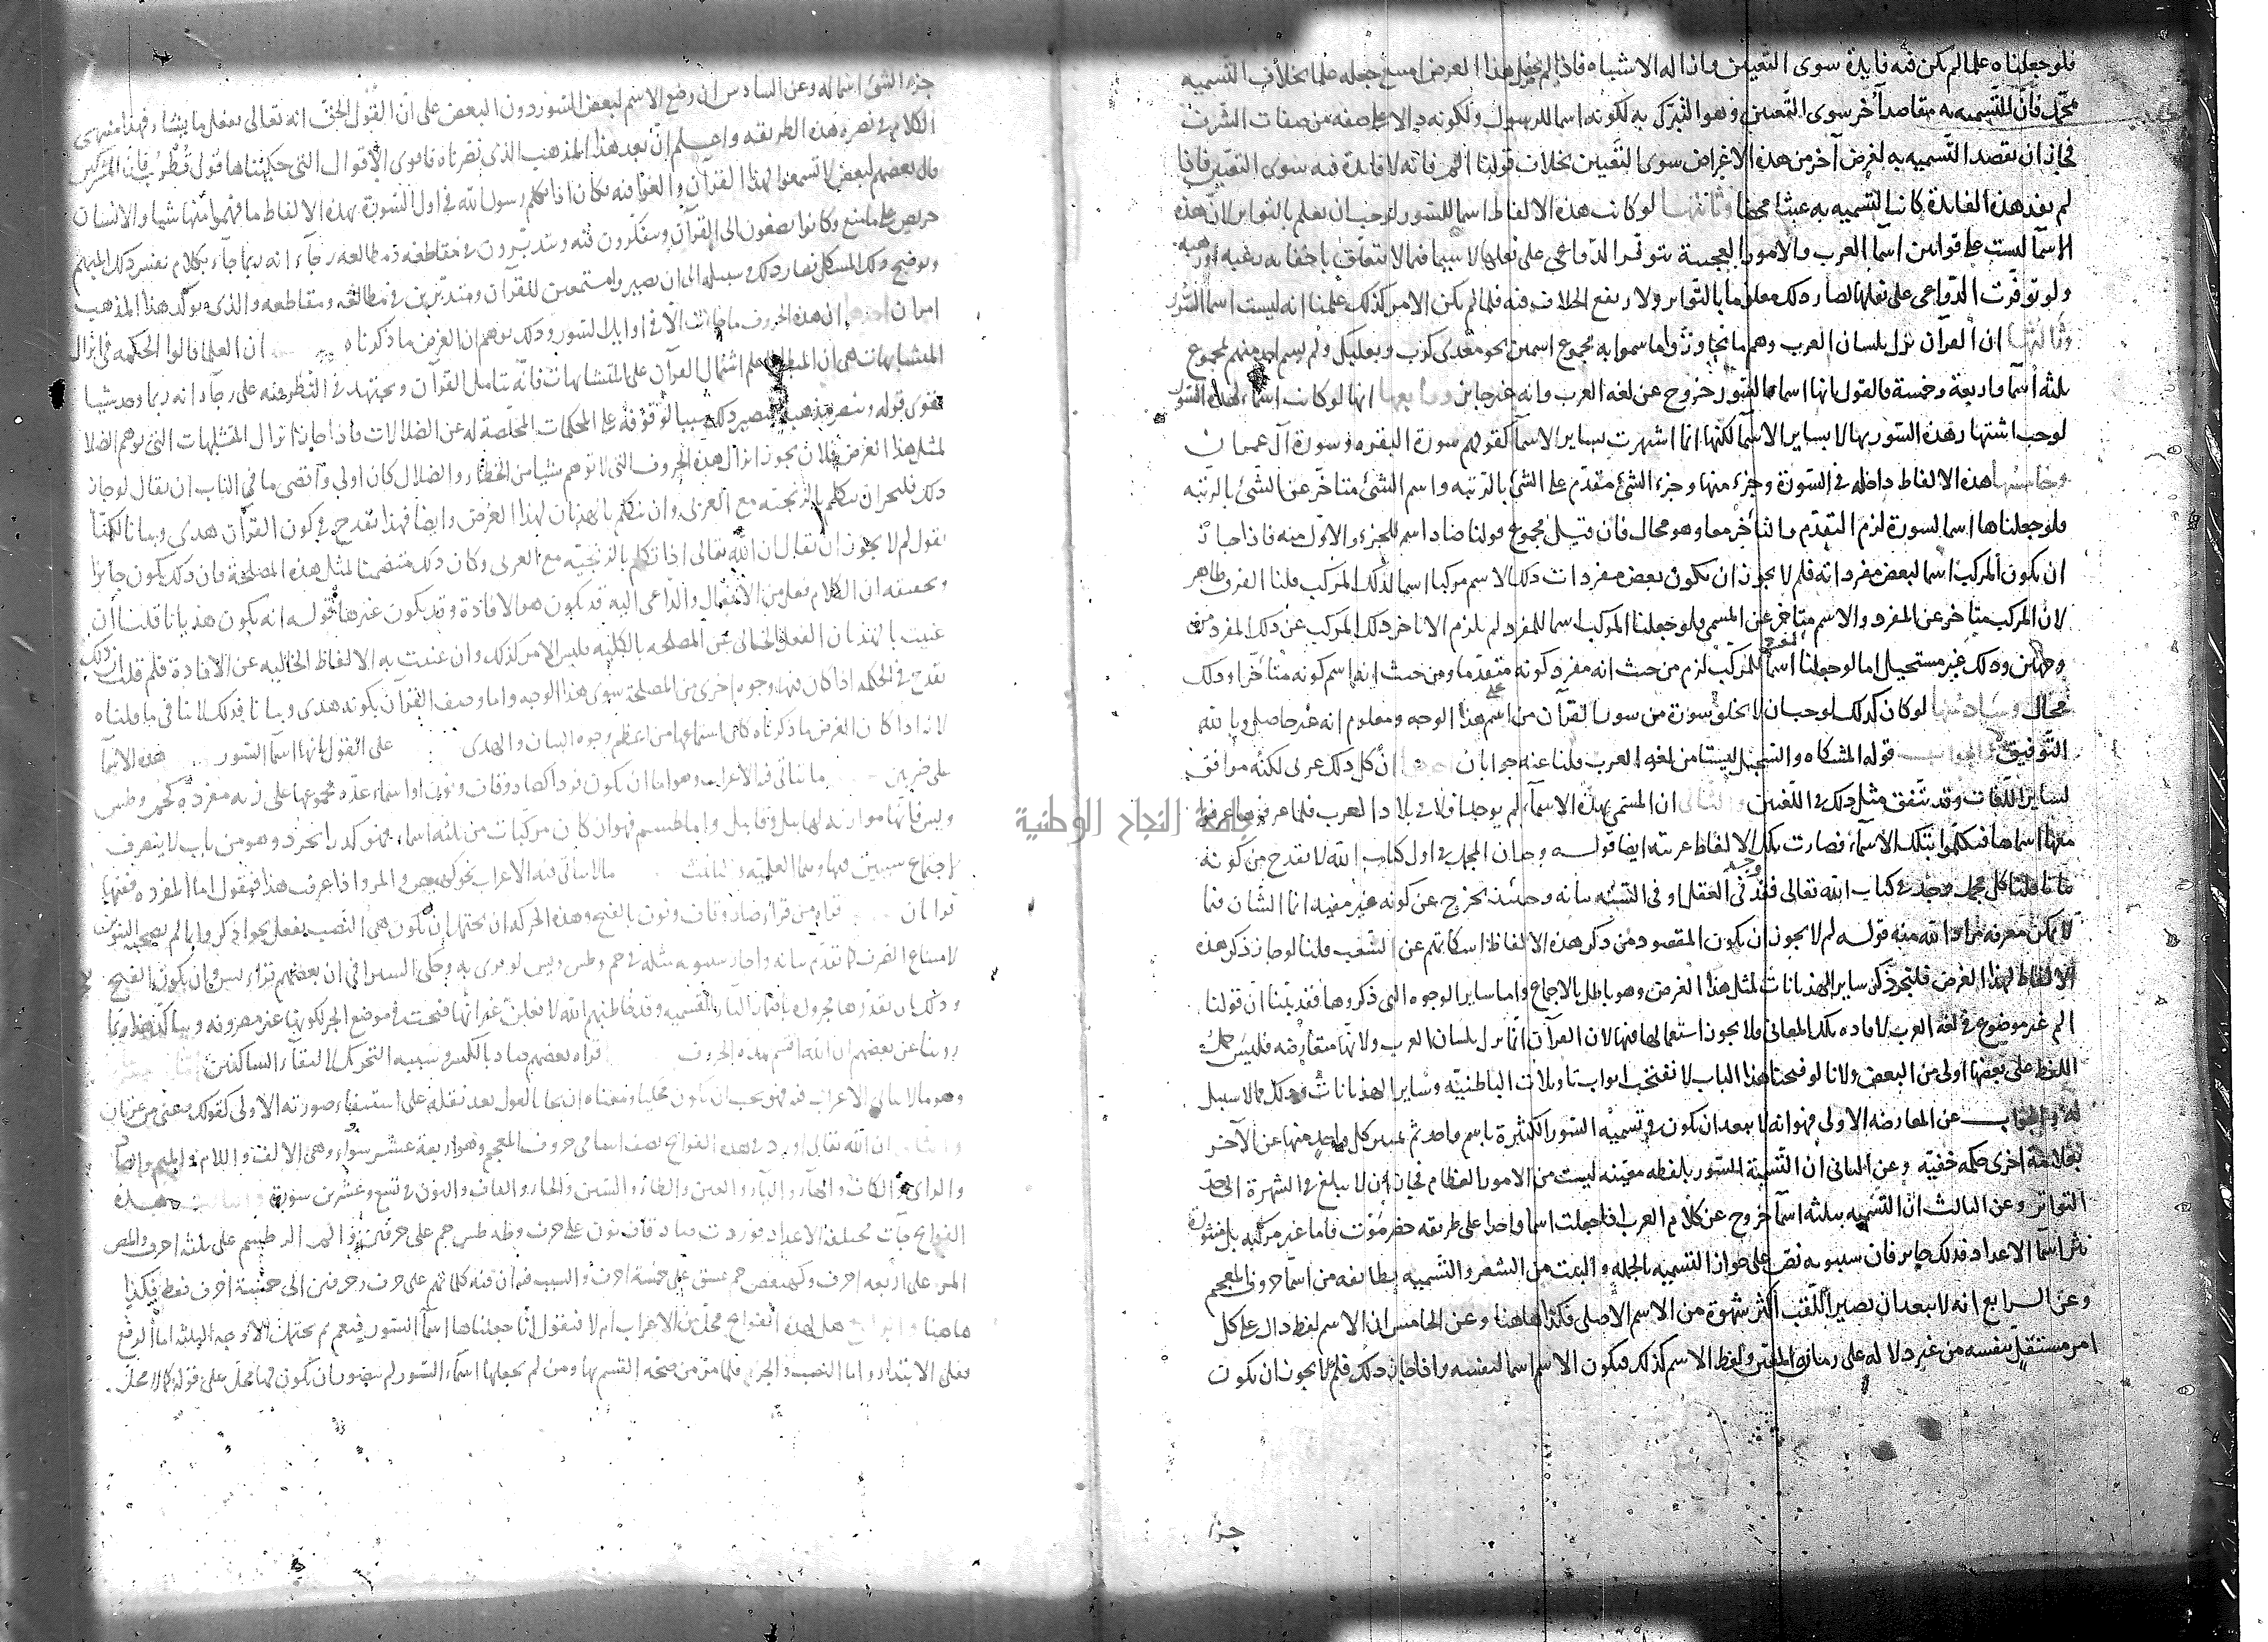 فلو جعلناه علما لم يكن فيه فايدة سوى التعيين وازاله الاشتباه فاذا لم يحصل هذا الغرض امتنع جعله علما بخلاف التسميه
بمحمد فان للتسميه به مقاصد اخر سوى التعيين وهو التبرك به لكونه اسما للرسول ولكونه دالا على صفه من صفات الشرف
فجاز ان يقصد التسميه به لغرض آخر من هذه الاغراض سوى التعيين بخلاف قولنا الم فانه لا فايدة فيه سوى التعيين فاذا
لم يفد هذه الفايدة كانت التسميه به عبثا محضا وثانيها لو كانت هذه الالفاظ اسما للسور لوجب ان يعلم بالتواتر لان هذه
الاسما ليست على قوانين اسما العرب والامور العجيبة تتوفر الدواعي على نقلها لا سيما فيما لا يتعلق باخفايه رغبه او رهبه
ولو توفرت الدواعي على نقلها لصار ذلك معلوما بالتواتر ولا رتفع الخلاف فيه فلما لم يكن الامر كذلك علمنا انه ليست اسما السور
وثالثها ان القرآن نزل بلسان العرب وهم ما تجاوزوا ما سموا به مجموع اسمين نحو معدي كرب وبعلبك ولم يسم احد منهم لمجموع
ثلثه اسما واربعة وخمسة فالقول بانها اسما السور خروج عن لغه العرب وانه غير جايز ورابعها انها لو كانت اسماء لهذه السور
لوجب اشتهار هذه السور بها لا بساير الاسما لكنها انما اشتهرت بساير الاسما كقولهم سورة البقره وسورة آل عمران
وخامسها هذه الالفاظ داخله في السورة وجزء منها وجزء الشئ متقدم على الشئ بالرتبه واسم الشئ متاخر عن الشئ بالرتبه
فلو جعلناها اسما لسورة لزم التقدم والتأخر معا وهو محال فان قيل مجموع قولنا صاد اسم للجزء والاول منه فاذا جاز
ان يكون المركب اسما لبعض مفرداته فلم لا يجوز ان يكون بعض مفردات ذلك الاسم مركبا اسما لذلك المركب قلنا الفرق ظاهر
لان المركب متاخر عن المفرد والاسم متاخر عن المسمى فلو جعلنا المركب اسما للمفرد لم يلزم الا تاخر ذلك المركب عن ذلك المفرد من
وجهين وذلك غير مستحيل اما لو جعلنا المفرد اسما للمركب لزم من حيث انه مفرد كونه متقدما ومن حيث انه اسم كونه متأخرا وذلك
محال وسادسها لو كان كذلك لوجب ان لا تخلو سورة من سور القرآن من اسم على هذا الوجه ومعلوم انه غير حاصل وبالله
التوفيق والجواب قوله المشكاه والسجيل ليستا من لغه العرب قلنا عنه جوابان احدهما ان كل ذلك عربي لكنه موافق
لساير اللغات وقد يتفق مثل ذلك في اللغتين والثاني ان المسمى بهذه الاسماء لم يوجد اولا في بلاد العرب فلما عرفوها عرفوا
منها اسماها فتكلموا بتلك الاسماء فصارت تلك الالفاظ عربيه ايضا قوله وجد ان المجمل في اول كتاب الله لا يقدح من كونه
بيانا قلنا كل مجمل وجد في كتاب الله تعالى فقد وجد في العقل او في السنه بيانه وحينئذ يخرج عن كونه غير مفيد انما الشان فيما
لا يمكن معرفه مراد الله منه قوله لم لا يجوز ان يكون المقصود من ذكر هذه الالفاظ اسكاتهم عن الشغب قلنا لو جاز ذكر هذه
الالفاظ لهذا الغرض فليجز ذكر ساير الهذيانات لمثل هذا الغرض وهو باطل بالاجماع واما ساير الوجوه التي ذكروها فقد بينا ان قولنا
الم غير موضوع في لغه العرب لافاده تلك المعاني فلا يجوز استعمالها فيها لان القرآن انما نزل بلسان العرب ولانها متعارضه فليس حمل
اللفظ على بعضها اولى من البعض ولانا لو فتحنا هذا الباب لانفتحت ابواب تاويلات الباطنيه وساير الهذيانات وذلك مما لا سبيل
له والجواب عن المعارضه الاولى فهو انه لا يبعد ان يكون في تسميه السور الكثيرة باسم واحد ثم تميز كل واحد منها عن الآخر
بعلامه اخرى حكمه خفيه وعن الثاني ان التسمية للسور بلفظه معينه ليست من الامور العظام فجاز ان لا يبلغ في الشهرة الى حد
التواتر وعن الثالث ان التسميه بثلثه اسما خروج عن كلام العرب اذا جعلت اسما واحدا على طريقه حضرموت فاما غير مركبه بل منثورة
نثر اسما الاعداد فذلك جايز فان سيبويه نص على جواز التسميه بالجمله والبيت من الشعر والتسميه بطائفه من اسما حروف المعجم
وعن الرابع انه لا يبعد ان يصير اللقب اكثر شهرة من الاسم الاصلي فكذا هاهنا وعن الخامس ان الاسم لفظ دال على كل
امر مستقل بنفسه من غير دلاله على زمانه المعين ولفظ الاسم كذلك فيكون الاسم اسما لنفسه واذا جاز ذلك فلم لا يجوز ان يكون
جزء
جزء الشئ اسما له وعن السادس ان وضع الاسم لبعض السور دون البعض على ان القول الحق انه تعالى يفعل ما يشاء فهذا منتهى
الكلام في نصره هذه الطريقه واعلم ان بعد هذا المذهب الذي نصرناه فاقوى الاقوال التي حكيناها قول قطرب فان المشركين
قال بعضهم لبعض لا تسمعوا لهذا القرآن والغوا فيه فكان اذا تكلم رسول الله في اول السورة بهذه الالفاظ ما فهموا منها شيا والانسان
حريص على ما منع وكانوا يصغون الى القرآن ويتفكرون فيه ويتدبرون في مقاطعه ومطالعه رجاء انه ربما جاء بكلام يفسر ذلك المبهم
ويوضح ذلك المشكل فصار ذلك وسيله الى ان يصيروا مستمعين للقرآن ومتدبرين في مطالعه ومقاطعه والذي يؤكد هذا المذهب
امران احدهما ان هذه الحروف ما جات الا في اوايل السور وذلك يوهم ان الغرض ما ذكرناه ان العلما قالوا الحكمه في انزال
المتشابهات هي ان المعلل لما علم اشتمال القرآن على المتشابهات فانه يتامل القرآن ويجتهد في التفكر فيه على رجآء انه ربما وجد شيا
يقوى قوله وينصر مذهبه فيصير ذلك سببا لوقوفه على المحكمات المخلصة له عن الضلالات فاذا جاز انزال المتشابهات التي توهم الضلا
لمثل هذا الغرض فلان يجوز انزال هذه الحروف التي لا توهم شيا من الخطاء والضلال كان اولى واقصى ما في الباب ان يقال لو جاز
ذلك فليجز ان يتكلم بالزنجيه مع العربي وان يتكلم بالهذيان لهذا الغرض وايضا فهذا يقدح في كون القرآن هدى وبيانا لكنا
نقول لم لا يجوز ان يقال ان الله تعالى اذا تكلم بالزنجيه مع العربي وكان ذلك متضمنا لمثل هذه المصلحة فان ذلك يكون جايزا
وتحقيقه ان الكلام فعل من الافعال والداعي اليه قد يكون هو الافادة وقد يكون غيرها قوله انه يكون هذيانا قلنا ان
عنيت بالهذيان الفعل الخالي عن المصلحه بالكليه فليس الامر كذلك وان عنيت به الالفاظ الخاليه عن الافادة فلم قلت ان ذلك
يقدح في الحكمه اذا كان فيها وجوه اخرى من المصلحه سوى هذا الوجه واما وصف القرآن بكونه هدى وبيانا فذلك لا ينافي ما قلناه
لانه اذا كان الغرض ما ذكرناه كان استماعها من اعظم وجوه البيان والهدى على القول بانها اسما السور هذه الاسما
على ضربين ما يتاتى فيه الاعراب وهو اما ان يكون فردا كصاد وقاف ونون او اسماء عده مجموعها على زنه مفرد كحم وطس
ويس فانها موازنه لهابيل وقابيل واما طسم فهو وان كان مركبات من ثلثه اسماء فهو كدرابجرد وهو من باب لا ينصرف
لاجتماع سببين فيها وهما العلميه والتانيث ما لا يتأتى فيه الاعراب نحو كهيعص والمر واذا عرف هذا فنقول اما المفرده ففيها
قراتان قراءه من قرأ صاد وقاف ونون بالفتح وهذه الحركه ان يحتمل ان تكون هي النصب بفعل نحو اذكر وانما لم يصحبه التنوين
لامتناع الصرف كما تقدم بيانه واجاز سيبويه مثله في حم وطس ويس لو قرى به وحكى السيرافي ان بعضهم قراء يس وان يكون الفتح
وذلك بان تقدرها مجرورة باضمار البا القسميه وقد جاء عنهم الله لافعلن غير انها فتحت في موضع الجر لكونها غير مصروفه ويتاكد هذا بما
روينا عن بعضهم ان الله اقسم بهذه الحروف قراءه بعضهم صاد بالكسر وسببه التحريك لالتقاء الساكنين
وهو ما لا يتاتى الاعراب فيه فهو يجب ان يكون محكيا ومعناه ان يجا بالقول بعد نقله على استبقاء صورته الاولى كقولك دعني من تمرتان
ان الله تعالى اورد في هذه الفواتح نصف اسامي حروف المعجم وهو اربعة عشر سواء وهي الالف واللام والميم والصاد
والراى والكاف والهاء والياء والعين والطاء والسين والحاء والقاف والنون في تسع وعشرين سورة هذه
الفواتح جات مختلفه الاعداد فوردت صاد قاف نون على حرف وطه وطس ويس وحم على حرفين والم والر وطسم على ثلثه احرف والمص
المر على اربعه احرف وكهيعص حم عسق على خمسة احرف والسبب فيه ان ابنية كلماتهم على حرف وحرفين الى خمسة احرف فقط فكذا
هاهنا هل لهذه الفواتح محل من الاعراب ام لا فنقول ان جعلناها اسما السور فنعم ثم يحتمل الاوجه الثلثه اما الرفع
فعلى الابتداء واما النصب والجر فلما مر من صحه القسم بها ومن لم يجعلها اسماء السور لم يتصور ان يكون لها محل على قوله كما لا محل
جامعة النجاح الوطنية